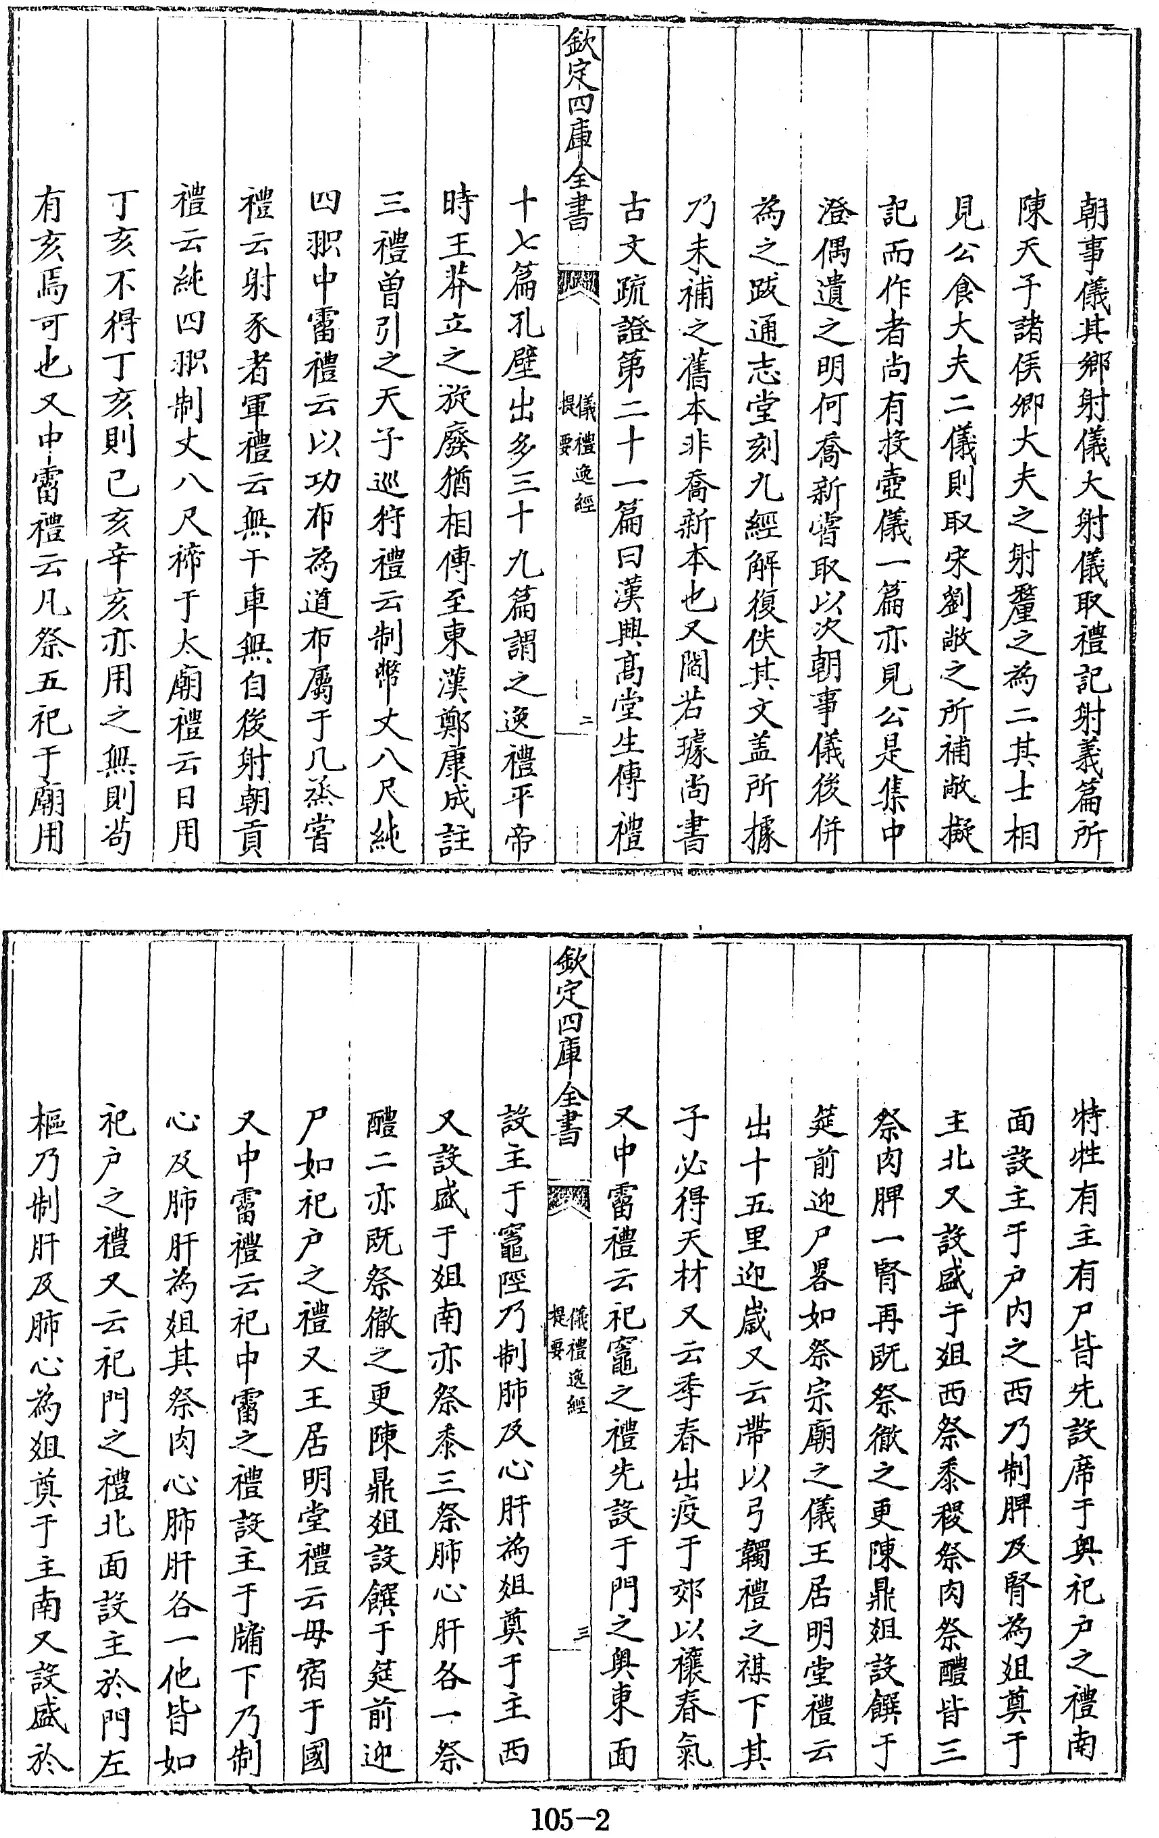 朝事儀其鄉射儀大射儀取禮記射義篇所
陳天子諸侯卿大夫之射釐之為二其士相
見公食大夫二儀則取宋劉敞之所補敞擬
記而作者尚有投壺儀一篇亦見公是集中
澄偶遺之明何喬新嘗取以次朝事儀後併
為之跋通志堂刻九經解復佚其文盖所據
乃未補之舊本非喬新本也又閻若璩尚書
古文疏證第二十一篇曰漢興髙堂生傳禮
欽定四庫全書
儀禮逸經
提要
二
十七篇孔壁出多三十九篇謂之逸禮平帝
時王莽立之旋廢猶相傳至東漢鄭康成註
三禮曾引之天子巡狩禮云制幣丈八尺純
四䏈中霤禮云以功布為道布屬于几烝嘗
禮云射豕者軍禮云無干車無自後射朝貢
禮云純四䏈制丈八尺禘于太廟禮云日用
丁亥不得丁亥則已亥辛亥亦用之無則苟
有亥焉可也又中霤禮云凡祭五祀于廟用
特牲有主有尸皆先設席于奥祀户之禮南
面設主于户内之西乃制脾及腎為俎奠于
主北又設盛于俎西祭黍稷祭肉祭醴皆三
祭肉脾一腎再既祭徹之更陳鼎俎設饌于
筵前迎尸畧如祭宗廟之儀王居明堂禮云
出十五里迎嵗又云帶以弓韣禮之禖下其
子必得天材又云季春出疫于郊以禳春氣
又中霤禮云祀竈之禮先設于門之奥東面
欽定四庫全書
儀禮逸經
提要
三
設主于竈陘乃制肺及心肝為俎奠于主西
又設盛于俎南亦祭黍三祭肺心肝各一祭
醴二亦既祭徹之更陳鼎俎設饌于筵前迎
尸如祀户之禮又王居明堂禮云毋宿于國
又中霤禮云祀中霤之禮設主于牖下乃制
心及肺肝為俎其祭肉心肺肝各一他皆如
祀户之禮又云祀門之禮北面設主於門左
樞乃制肝及肺心為俎奠于主南又設盛於
105-2